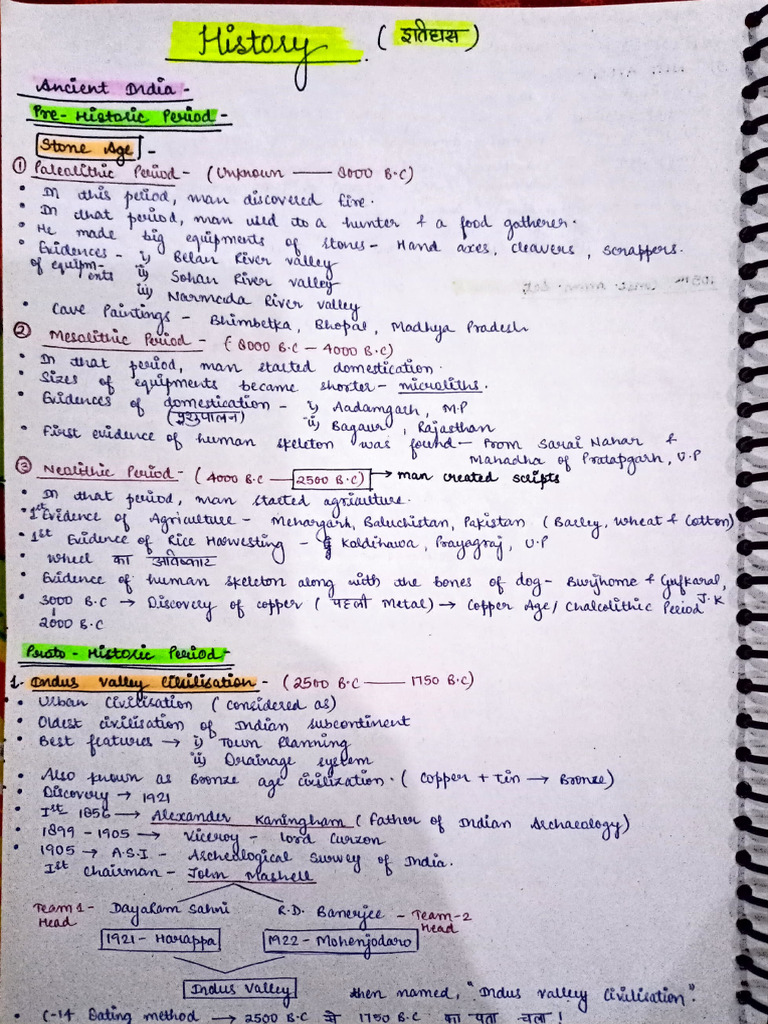 History (इतिहास)
Ancient India -
Pre-Historic Period -
Stone Age -
① Paleolithic Period - (Unknown —— 8000 B.C)
• In this period, man discovered fire.
• In that period, man used to a hunter & a food gatherer.
• He made big equipments of stones - Hand axes, cleavers, scrappers.
• Evidences of equipments - i) Belan River valley
ii) Sohan River valley
iii) Narmada River valley
• Cave Paintings - Bhimbetka, Bhopal, Madhya Pradesh
② Mesolithic Period - (8000 B.C — 4000 B.C)
• In that period, man started domestication.
• Sizes of equipments became shorter - microliths.
• Evidences of domestication - i) Aadamgarh, M.P
(पशुपालन) ii) Bagaur, Rajasthan
• First evidence of human skeleton was found - From Sarai Nahar &
Mahadha of Pratapgarh, U.P
③ Neolithic Period - (4000 B.C — 2500 B.C) → man created scripts
• In that period, man started agriculture.
• 1st Evidence of Agriculture - Mehargarh, Baluchistan, Pakistan (Barley, Wheat & Cotton)
• 1st Evidence of Rice Harwesting - Koldihawa, Prayagraj, U.P
• Wheel का आविष्कार
• Evidence of human skeleton along with the bones of dog - Burjhome & Gufkaral, J.K
• 3000 B.C → Discovery of copper (पहली Metal) → Copper Age/Chalcolithic Period
2000 B.C
Proto-Historic Period -
1. Indus Valley Civilisation - (2500 B.C —— 1750 B.C)
• Urban Civilisation (considered as)
• Oldest civilisation of Indian subcontinent
• Best features → i) Town Planning
ii) Drainage system
• Also known as Bronze age civilization. (Copper + Tin → Bronze)
• Discovery → 1921
• Ist 1856 → Alexander Kaningham (Father of Indian Archaeology)
• 1899 - 1905 → Viceroy - Lord Curzon
• 1905 → A.S.I - Archeological Survey of India.
Ist Chairman - John Mashell
Team 1 - Head Dayaram Sahni R.D. Banerjee - Team-2 Head
1921 - Harappa 1922 - Mohenjodaro
Indus Valley then named, "Indus valley Civilisation".
• C-14 Dating method → 2500 B.C से 1750 B.C का पता चला!